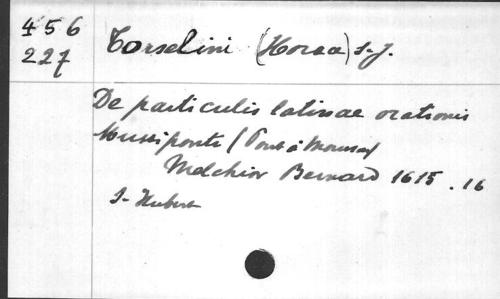 456
227
Torselini (Horaa) S.J.
De particulis latinae orationis
Mussiponti (Pont à Mousson)
Melchior Bernard 1615. 16
S- Hubert